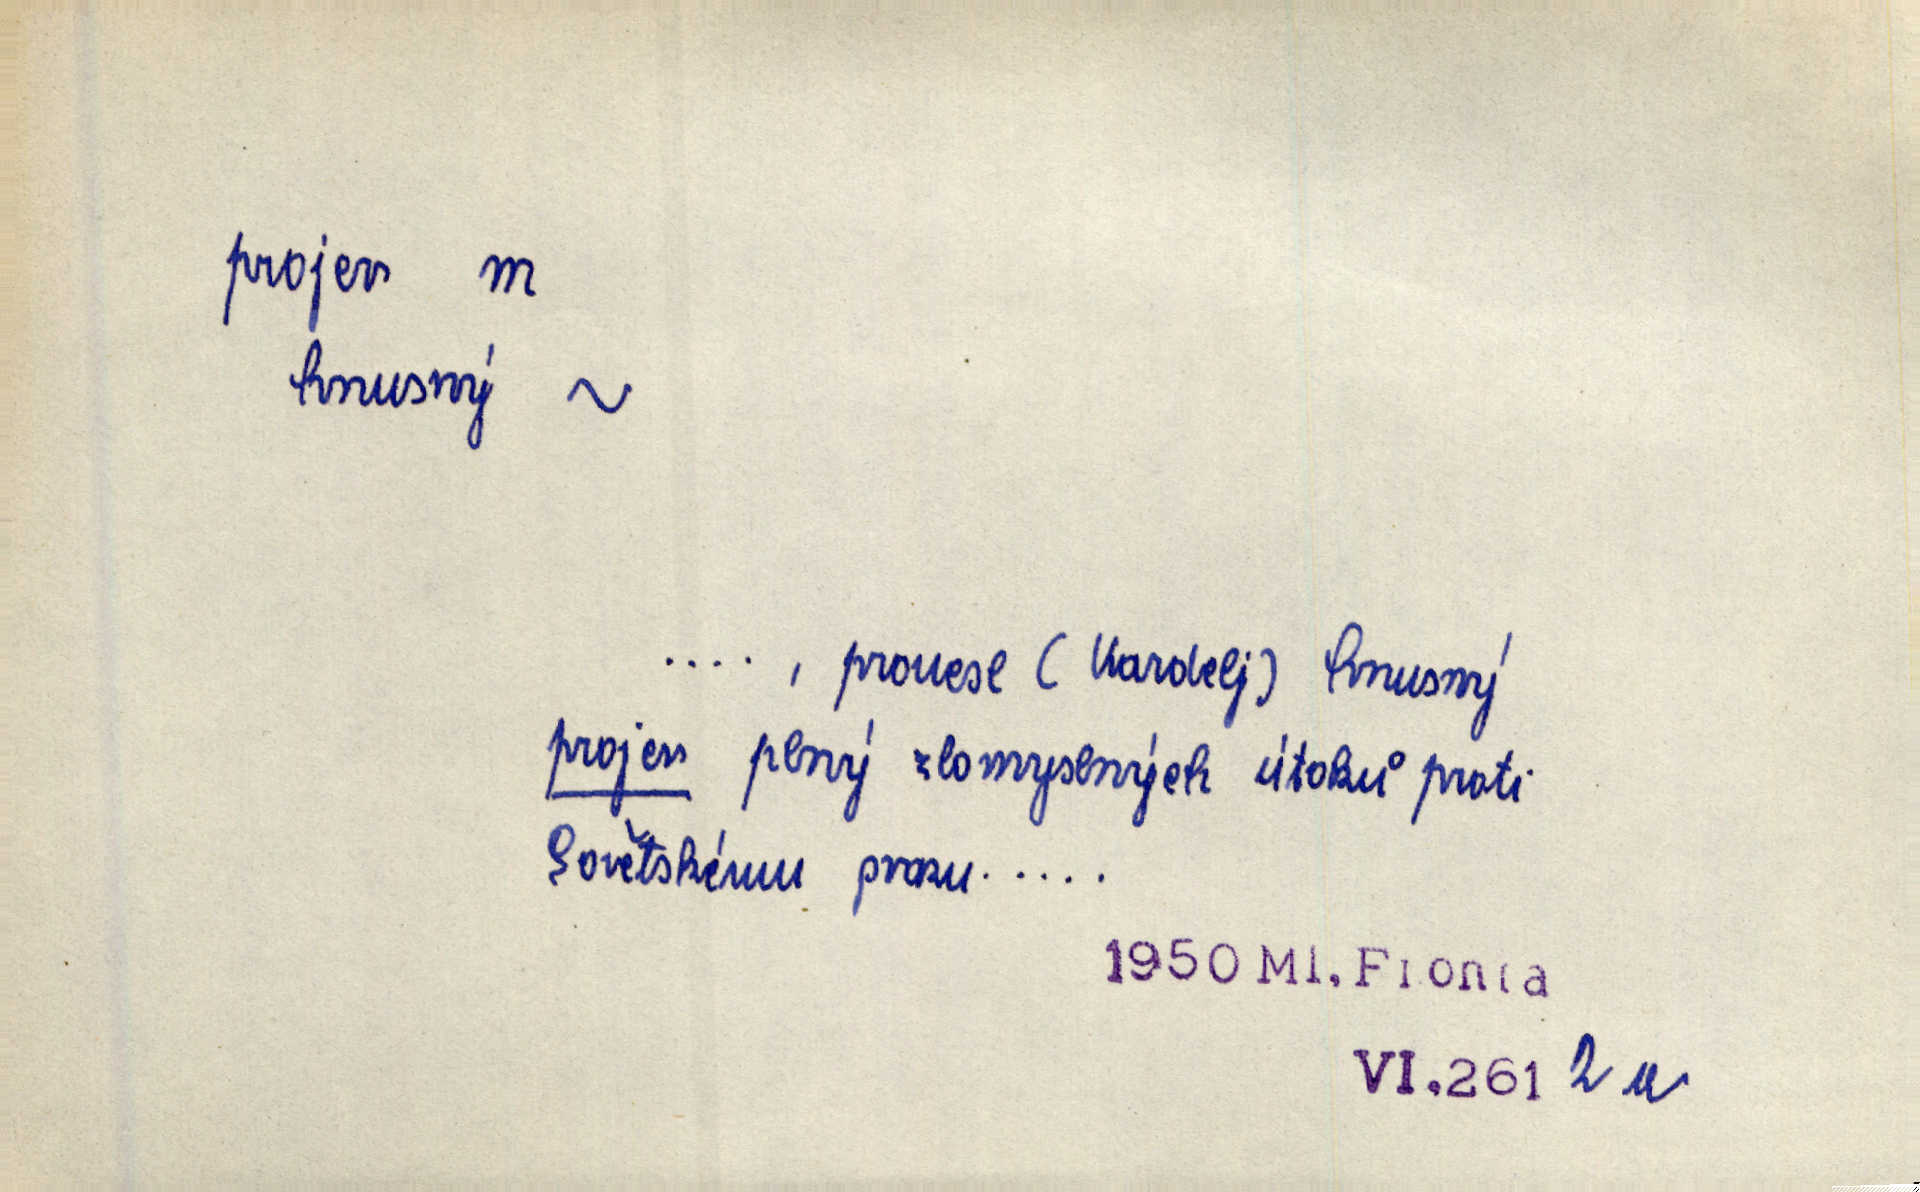 projev m
hnusný ~
...., pronesl (Kardelj) hnusný
projev plný zlomyslných útoků proti
Sovětskému svazu.....
1950 Ml. Fronta
VI.261 2